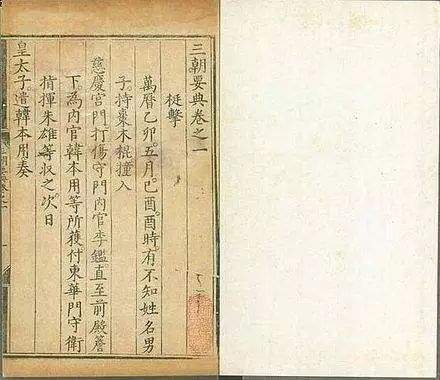 三朝要典卷之一
梃擊
萬曆乙卯五月己酉酉時有不知姓名男
子持棗木棍撞入
慈慶宮門打傷守門內官李鑑直至前殿簷
下為內官韓本用等所獲付東華門守衛
指揮朱雄等収之次日
皇太子遣韓本用奏